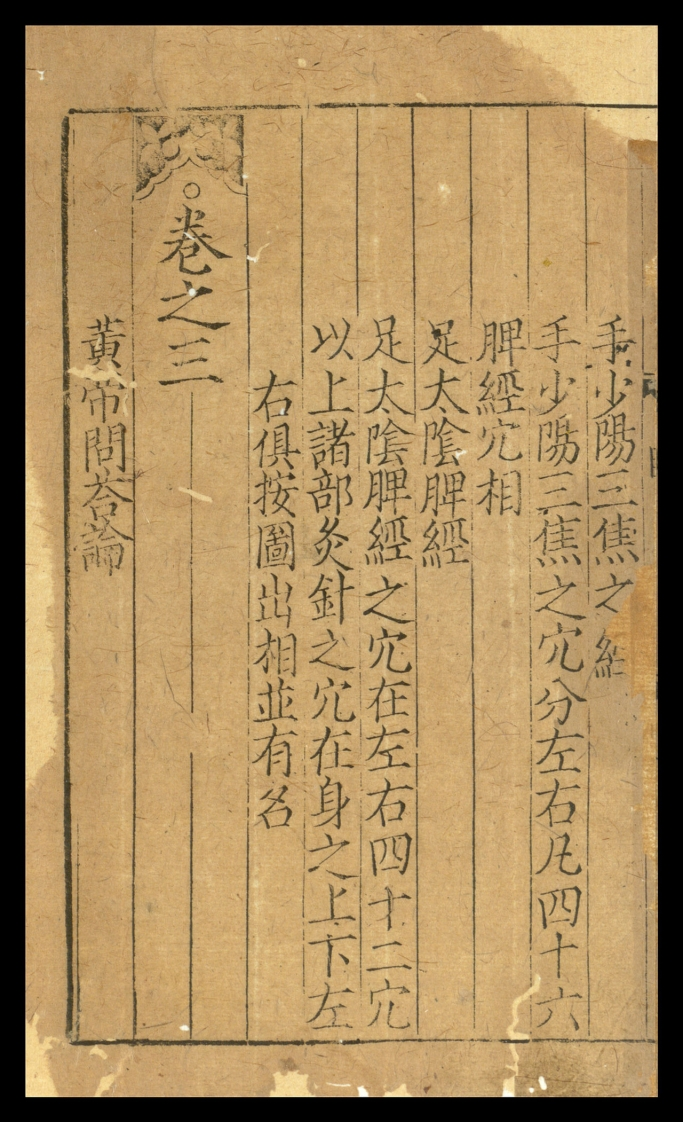 手少陽三焦之經
手少陽三焦之穴分左右凡四十六
脾經穴相
足太陰脾經
足太陰脾經之穴在左右四十二穴
以上諸部灸針之穴在身之上下左
右俱按圖出相並有名
○卷之三
黃帝問荅論